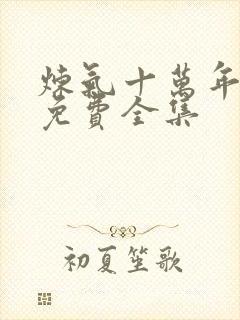 煉氣十萬年
免費全集
初夏笙歌